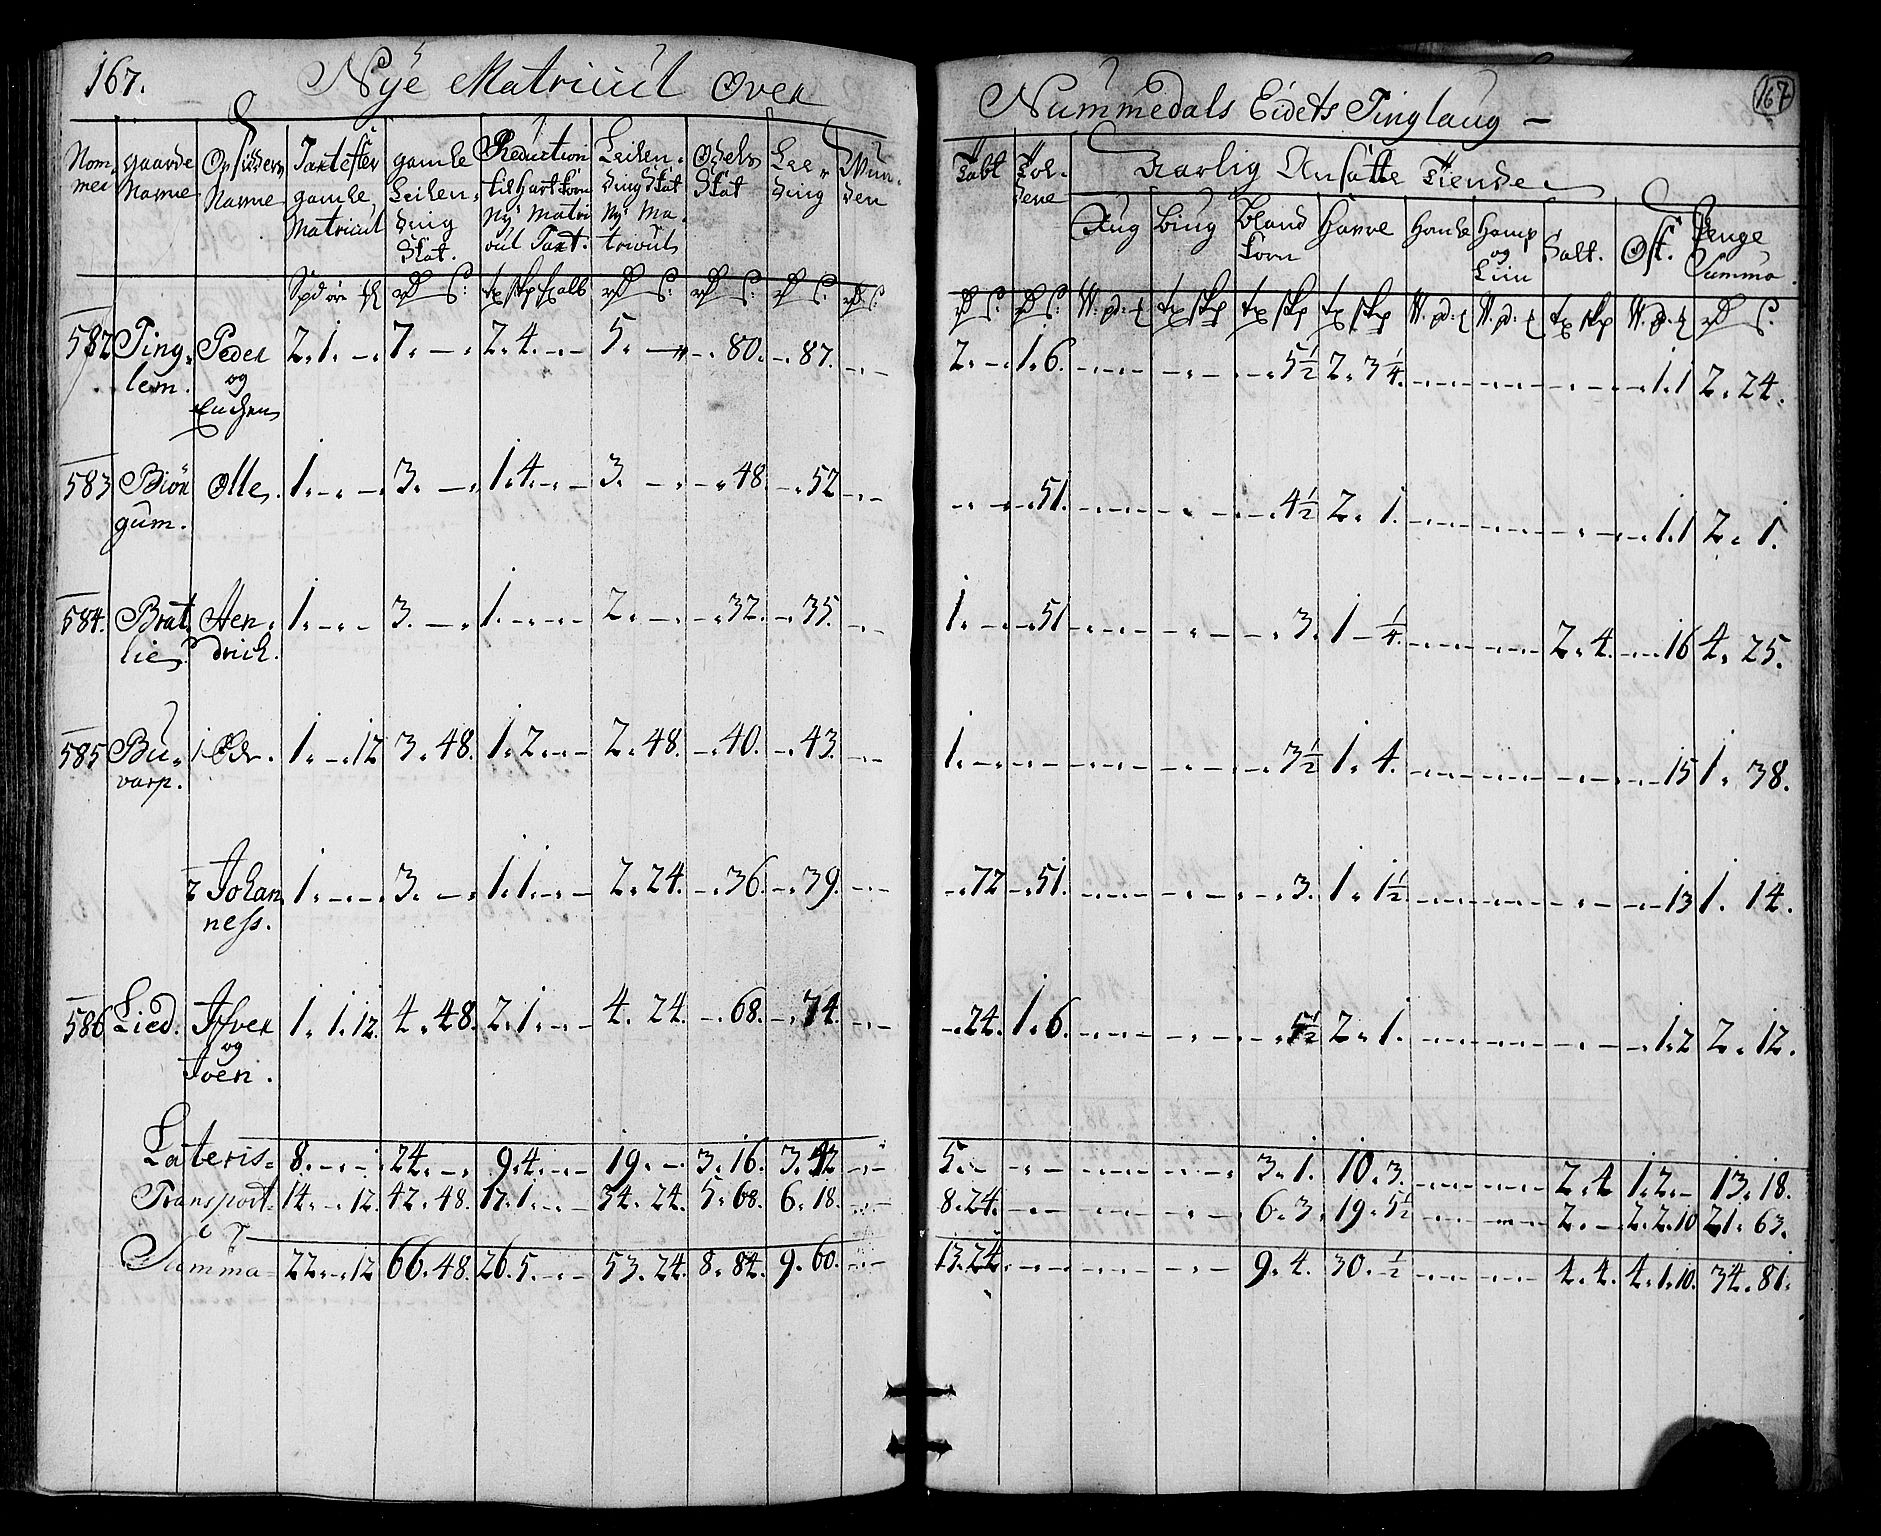 167. Nye Matricul Over
Nummedals Eidets Tinglaug –
167
Nom- mer | gaarde Navne | Opsidders Navne | Taxt efter gamle Matricul | gamle Leilen- ding Skat. | Reduction til Hart Korn Nye Matri cul Taxt. | Leilen- ding Skat Nye Ma- tricul | Odels Skat | Lee- ding
Told- | Aarlig Ansatte Tiende
Rug | Biug | Bland Korn | Havre | Homle | Hamp og Liin | Salt. | Ost. | Penge Summa.
582 Ting- Peder 2. 1. – 7. – . 2. 4. – . – 5. – – . 80. – . 87. 2. – 1. 6. 5½ 2. 3¼. 1. 1 2. 24.
lem. og
Enchen
583 Biør Olle. 1. – . – 3. – . 1. 4. – . – 3. – . – . 48. – . 52 – . 51. 4½ 2. 1. 1. 1 2. 1.
gum.
584. Brat Hen- 1. – . – 3. – . 1. – . – . – 2. – . – . 32. – . 35. 1. – – . 51 3. 1 – ¼. 2. 4. 16 4. 25.
lie drich.
585 Bu- 1. – . 12 3. 48. 1. 2. – . – 2. 48. – . 40. – . 43. 1. – 3½ 1. 4. 15 1. 38.
varp.
2 Johan 1. – . – . 3. – . 1. 1. – . – 2. 24. – . 36. – . 39. – . 72 – . 51. 3. 1. 1½. 13 1. 14.
ness.
586 Lied. Iffver 1. 1. 12. 4. 48. 2. 1. – . – 4. 24. – . 68. – . 74. – . 24. 1. 6. 2. 1. 1. 2 2. 12.
og
Joen.
Lateris 8. – . – . 24. – . 9. 4. – . – 19. – . 3. 16. 3. 42 5. – 3. 1. 10. 3. 2. 4 1. 2. – 13. 18.
Transport 14. – . 12. 42. 48. 17. 1. – . – 34. 24. 5. 68. 6. 18. 8. 24. 6. 3. 19. 5½ 2. – 2. 2. 10 21. 63.
Summa 22. – . 12 66. 48. 26. 5. – . – 53. 24. 8. 84. 9. 60. 13. 24. 9. 4. 30. ½ 4. 4. 4. 1. 10. 34. 81.